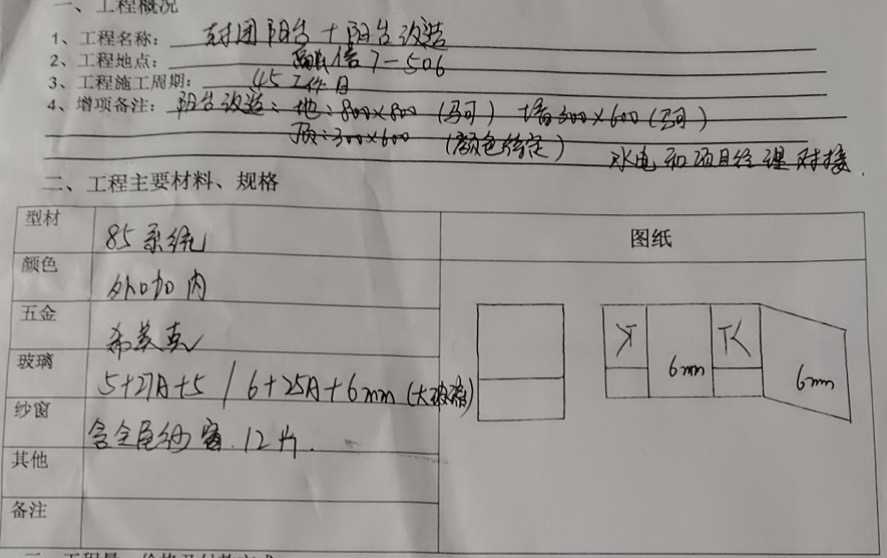 一、工程概况
1、工程名称: 封闭阳台+阳台改造
2、工程地点: 7-506
3、工程施工周期: 45工作日
4、增项备注: 阳台改造: 地:800×800 (马可) 墙300×600 (马可)
顶:300×600 (颜色待定) 水电和项目经理对接.
二、工程主要材料、规格
型材 85系统
图纸
颜色 外咖内
五金 希美克
玻璃 5+27A+5 / 6+25A+6mm (大玻璃)
纱窗 12片.
其他
备注
6mm
6mm